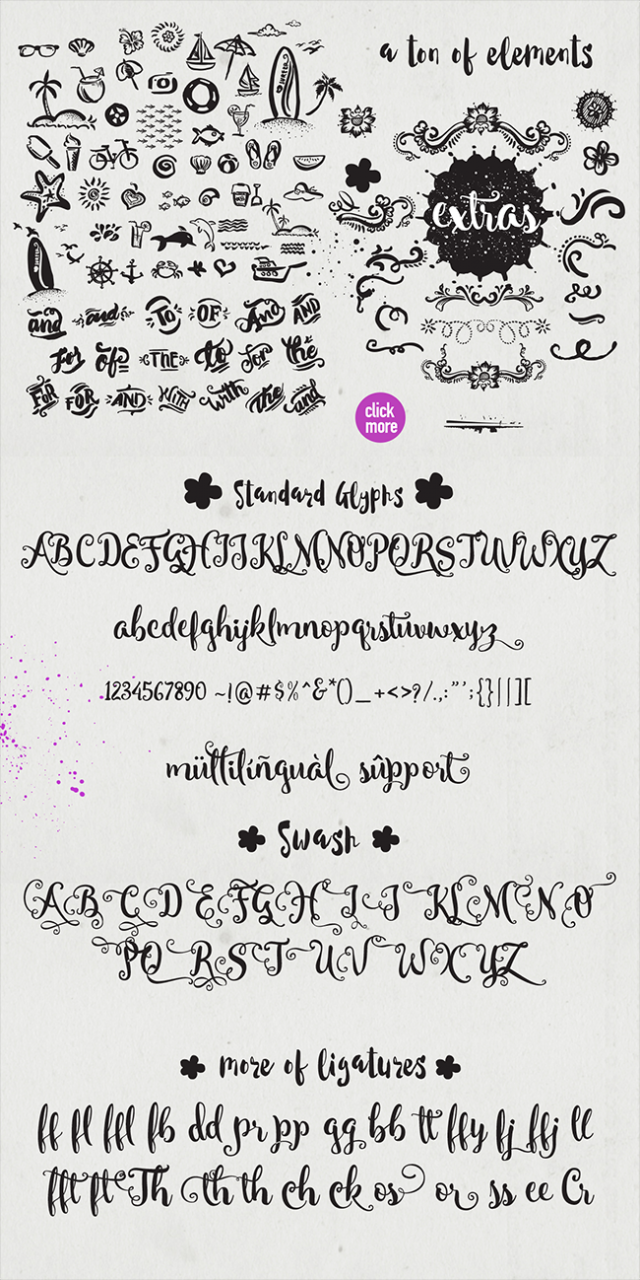 a ton of elements
extras
and and TO OF And AND
for of THE to for the
FOR FOR AND WITH with the and
click
more
Standard Glyphs
ABCDEFGHIJKLMNOPQRSTUVWXYZ
abcdefghijklmnopqrstuvwxyz
1234567890 ~!@#$%^&*()_+<>?/.,:"';{}||][
mültilíñguàl sûpport
Swash
A B C D E F G H I J K L M N O
P Q R S T U V W X Y Z
more of ligatures
ff fl ffl fb dd pr pp gg bb tt ffy fj ffj ll
fft ft Th th th ch ck os or ss ee Cr